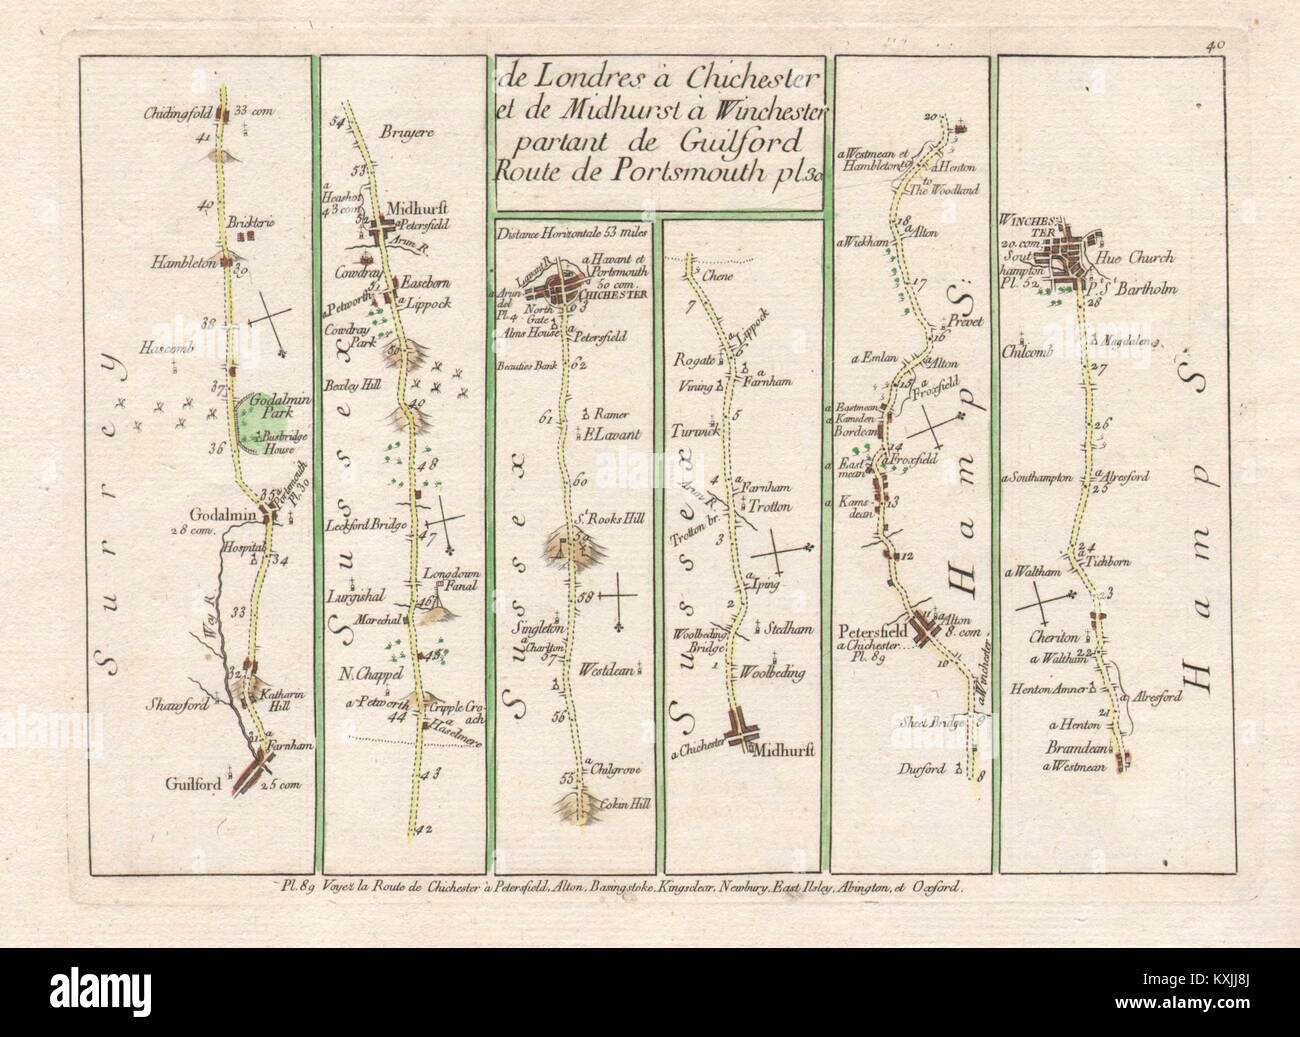 40
de Londres à Chichester
et de Midhurst à Winchester
partant de Guilford
Route de Portsmouth pl.30
Chidingfold
33 com
41
40
Brickterie
Hambleton
39
38
Hascomb
37
Godalmin
Park
Busbridge
House
36
35
a Portsmouth
Pl.30
Godalmin
28 com.
Hospital
34
33
Wey R.
32
Katharin
Hill
Shawford
31
a
Farnham
Guilford
25 com
Surrey
54
Bruyere
53
a
Heashot
43 com
52
Midhurst
a Petersfield
Arun R.
Cowdray
Easeborn
51
a Petworth
a
Lippock
Cowdray
Park
50
Bexley Hill
49
48
Leckford Bridge
47
Longdown
Fanal
Lurgishal
46
Marechal
45
N. Chappel
a Petworth
Cripple Cro-
ach
44
a
Haselmere
43
42
Sussex
Distance Horizontale 53 miles
Lavant R.
a Havant et
Portsmouth
60 com.
a Arun
del
Pl.4
CHICHESTER
North
Gate
63
Alms House
a
Petersfield
Beauties Bank
62
61
Ramer
E Lavant
60
St. Rooks Hill
59
58
Singleton
a
Charlton
57
Westdean
56
a
Chilgrove
55
Cokin Hill
Sussex
a
Chene
7
a
Lippock
Rogate
6
Vining
a
Farnham
5
Turwick
4
a
Farnham
Arun R.
Trotton
Trotton br.
3
a
Iping
2
Woolbeding
Bridge
Stedham
1
Woolbeding
a Chichester
Midhurst
Sussex
20
a Westmean et
Hambleton
19
a Henton
to
The Woodland
18
a
Alton
a Wickham
17
Prevet
16
a Emlan
a
Alton
15
a
Froxfield
a Eastmean
a Kamsden
Bordean
14
a
Froxfield
a East
mean
a Kams-
dean
13
12
11
a Alton
8. com
Petersfield
a Chichester
Pl. 89
10
a Winchester
Sheet Bridge
9
Durford
8
Hamp S:
WINCHES-
TER
20. com
a
Sout
hampton
Pl. 52
Hue Church
P.t S.t Bartholm
28
Chilcomb
Magdalen
27
26
a Southampton
a
Alresford
25
24
a
Tichborn
a Waltham
23
Cheriton
22
a Waltham
Henton Amner
a
Alresford
21
a Henton
Bramdean
a Westmean
Hamp S.
Pl. 89 Voyez la Route de Chichester à Petersfield, Alton, Basingstoke, Kingsclear, Newbury, East Ilsley, Abington, et Oxford.
alamy
alamy
Image ID: KXJJ8J
www.alamy.com